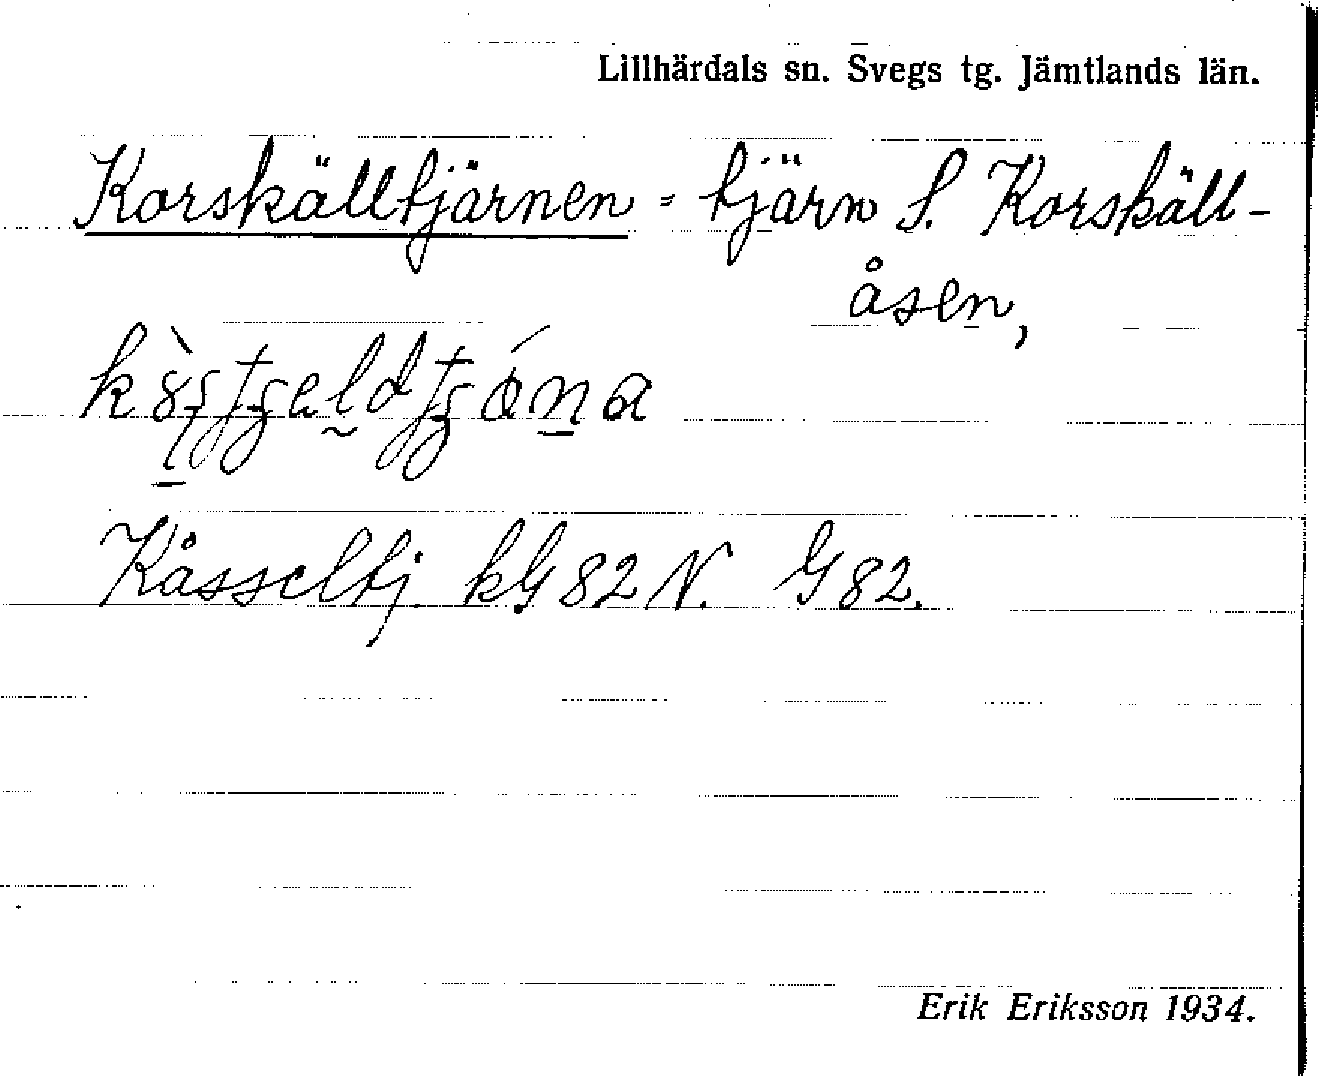 Lillhärdals sn. Svegs tg. Jämtlands län.
Korskälltjärnen = tjärn S. Korskäll-
åsen,
Kåsseltj kG 82 N. G 82.
Erik Eriksson 1934.